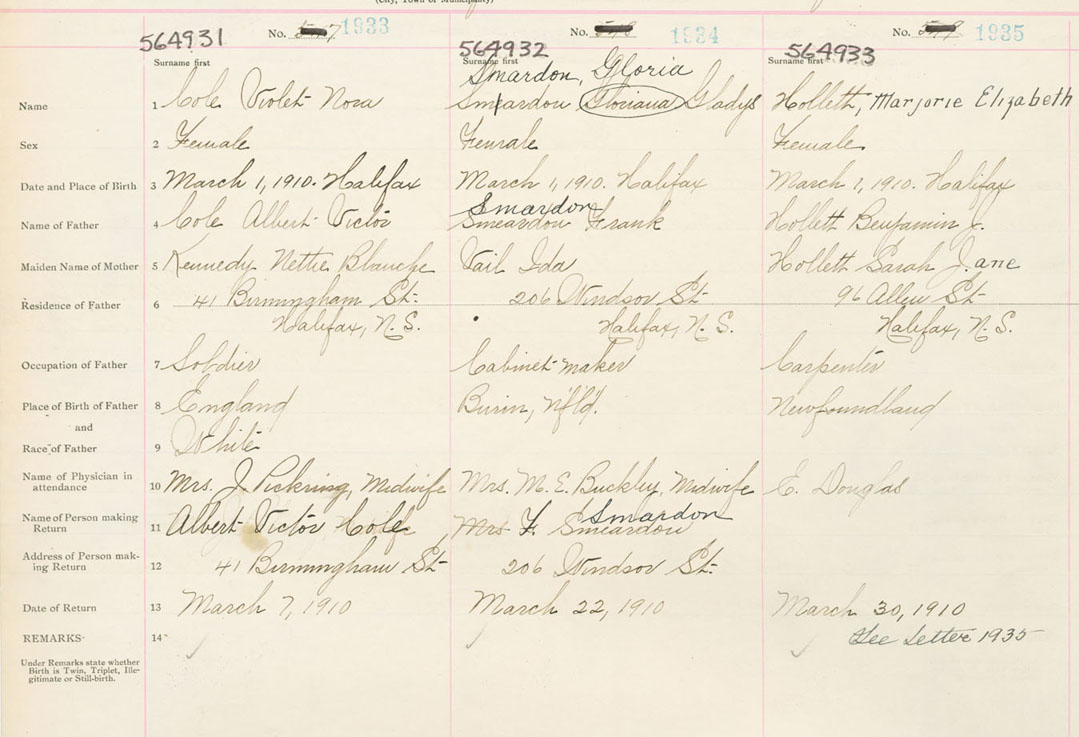 (City, Town or Municipality)
564931 No. 1933 564932 No. 1934 564933 No. 1935
Surname first Surname first Surname first
Smardon, Gloria
Name 1 Cole Violet Nora Smeardon Gloriana Gladys Hollett, Marjorie Elizabeth
Sex 2 Female Female Female
Date and Place of Birth 3 March 1, 1910. Halifax March 1, 1910. Halifax March 1, 1910. Halifax
Smardon
Name of Father 4 Cole Albert Victor Smeardon Frank Hollett Benjamin J.
Maiden Name of Mother 5 Kennedy Nettie Blanche Vail Ida Hollett Sarah Jane
Residence of Father 6 41 Birmingham St. 206 Windsor St. 96 Allen St.
Halifax, N.S. Halifax, N.S. Halifax, N.S.
Occupation of Father 7 Soldier Cabinet-maker Carpenter
Place of Birth of Father 8 England Burin, Nfld. Newfoundland
and
Race of Father 9 White
Name of Physician in attendance 10 Mrs. J. Pickring, Midwife Mrs. M. E. Buckley, Midwife E. Douglas
Smardon
Name of Person making Return 11 Albert Victor Cole Mrs. F. Smeardon
Address of Person making Return 12 41 Birmingham St. 206 Windsor St.
Date of Return 13 March 7, 1910 March 22, 1910 March 30, 1910
REMARKS 14 See Letter 1935
Under Remarks state whether
Birth is Twin, Triplet, Ille-
gitimate or Still-birth.